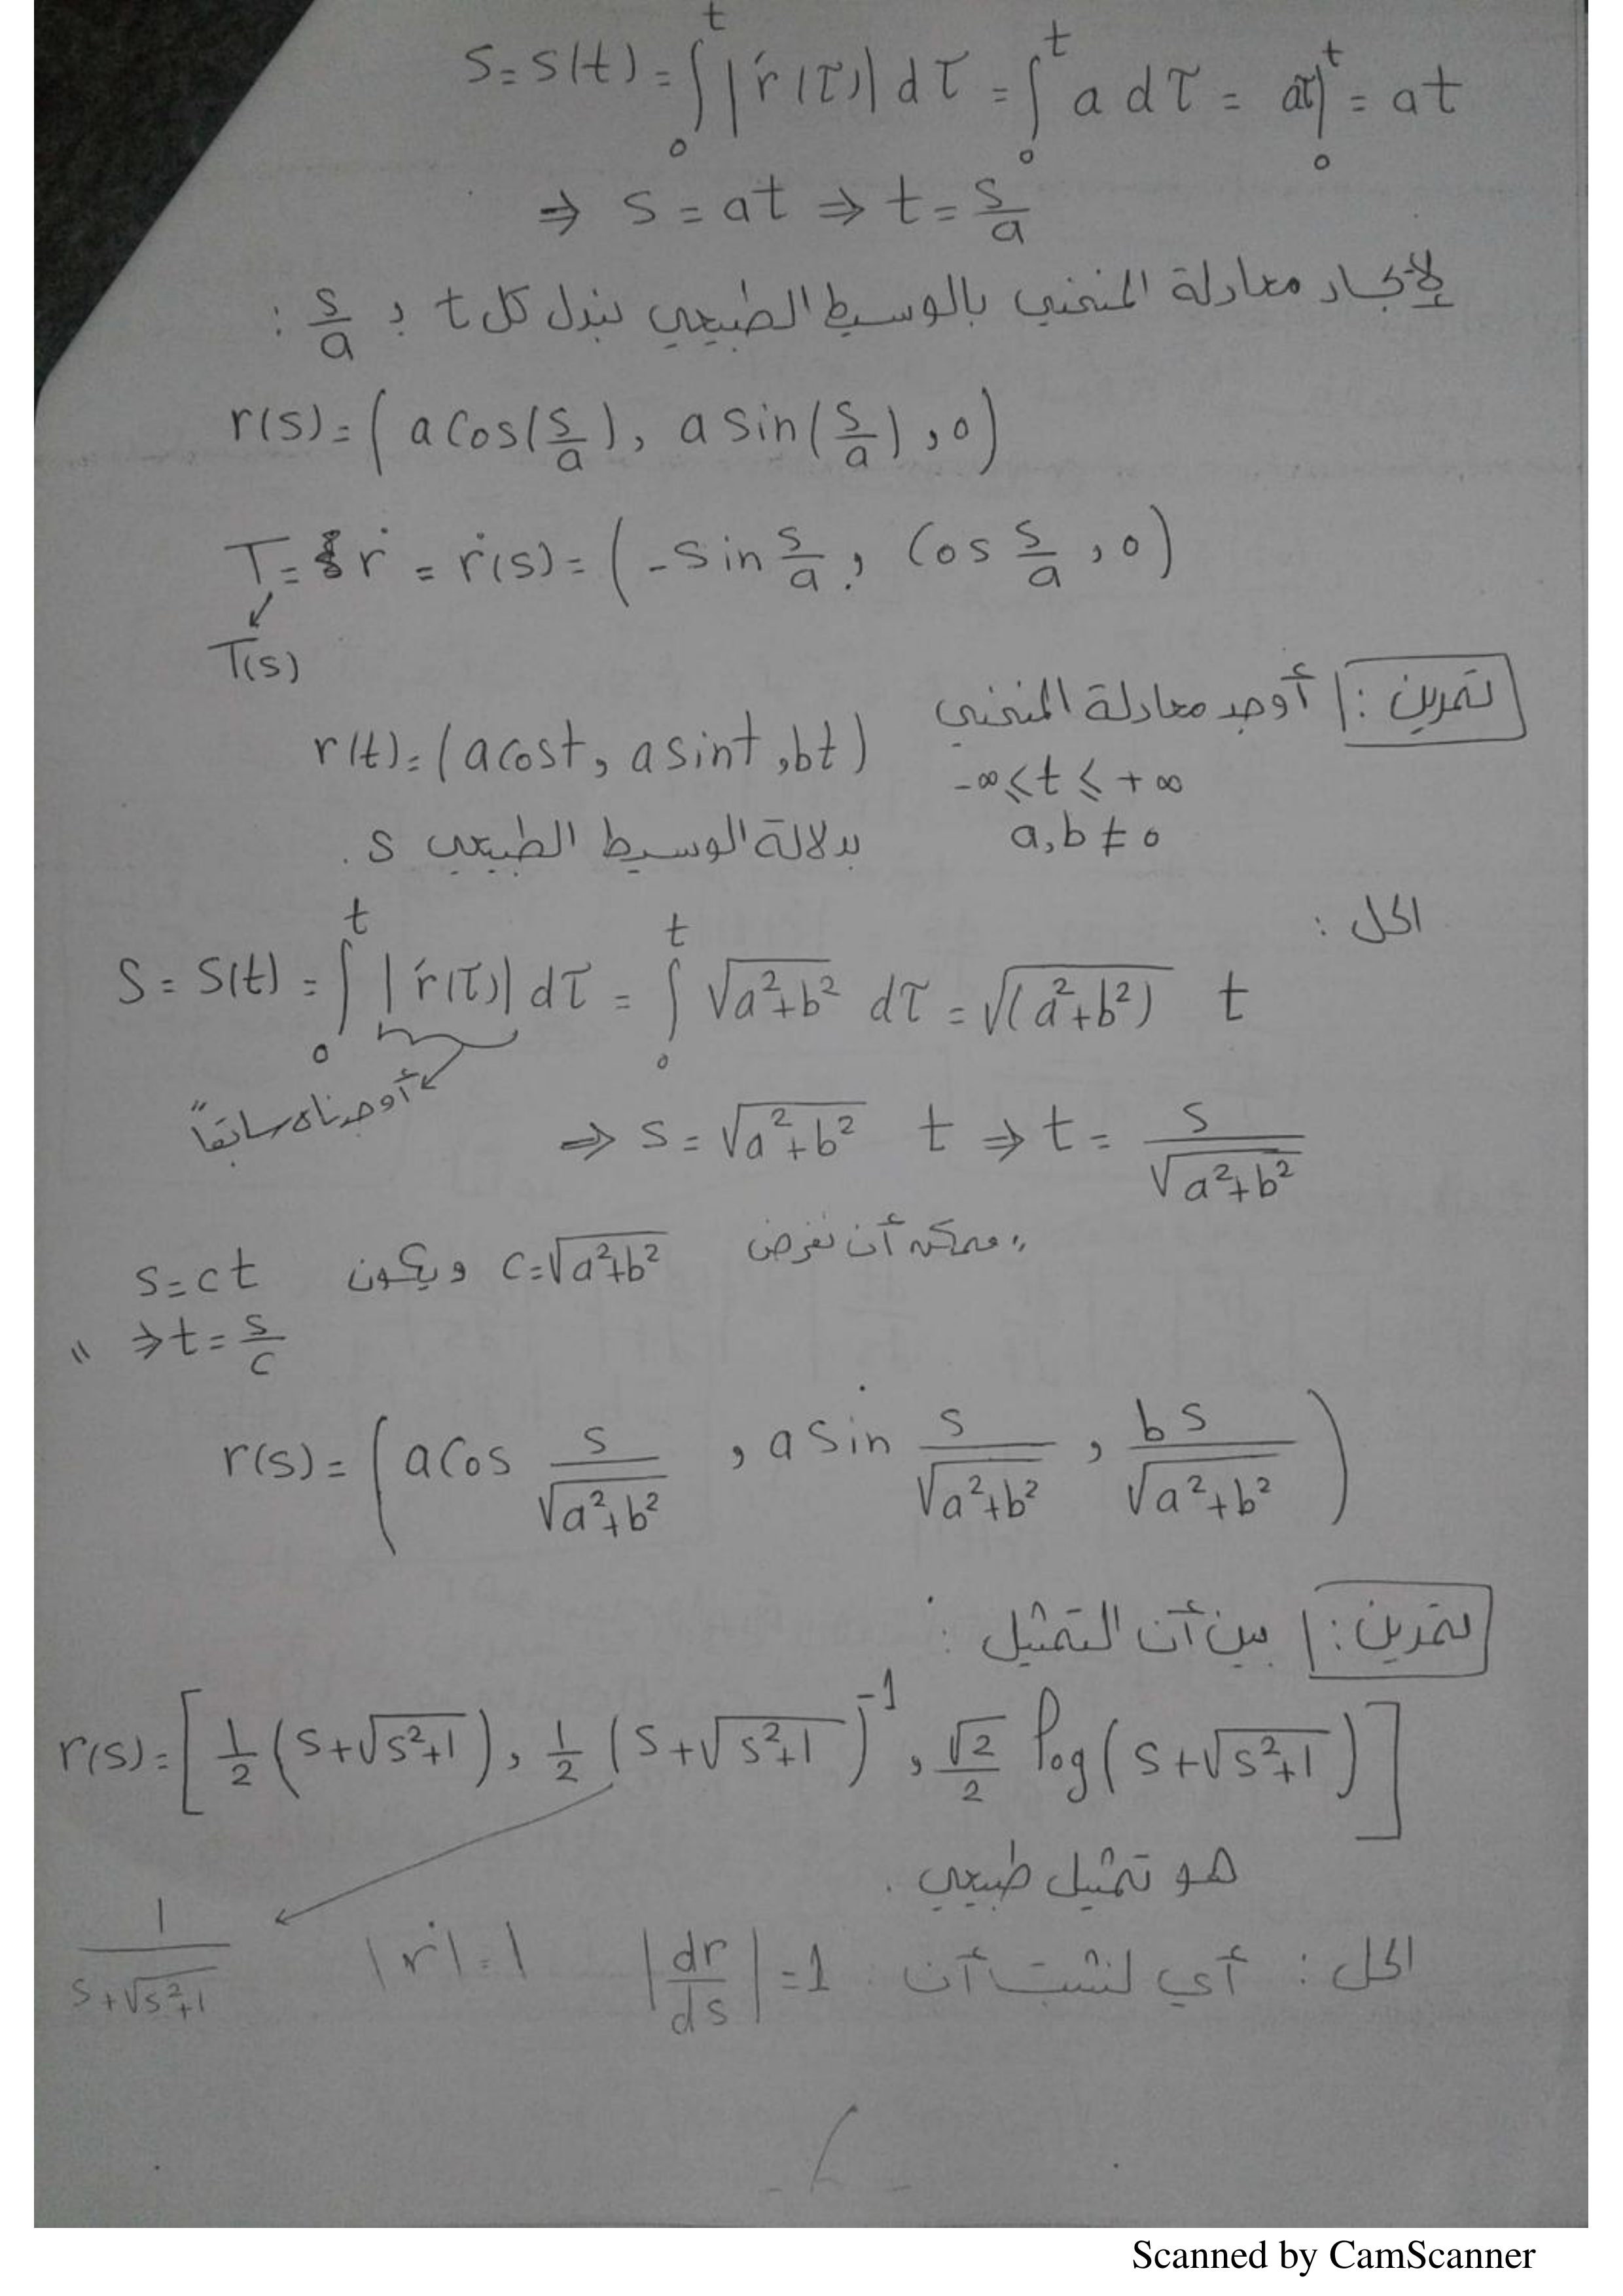 s = s(t) = ∫₀ᵗ |r′(τ)| dτ = ∫₀ᵗ a dτ = aτ|₀ᵗ = at
⇒ s = at ⇒ t = s/a
لإيجاد معادلة المنحني بالوسيط الطبيعي نبدل كل t بـ s/a :
r(s) = (a cos(s/a), a sin(s/a), 0)
T = ṙ = ṙ(s) = (-sin s/a, cos s/a, 0)
T(s)
تمرين: أوجد معادلة المنحني
r(t) = (a cos t, a sin t, bt)
-∞ ≤ t ≤ +∞
a, b ≠ 0
بدلالة الوسيط الطبيعي s .
الحل :
s = s(t) = ∫₀ᵗ |r′(τ)| dτ = ∫₀ᵗ √(a²+b²) dτ = √(a²+b²) t
أوجدناه سابقاً
⇒ s = √(a²+b²) t ⇒ t = s/√(a²+b²)
"ممكن أن نفرض c = √(a²+b²) ويكون s = ct
⇒ t = s/c "
r(s) = (a cos s/√(a²+b²), a sin s/√(a²+b²), bs/√(a²+b²))
تمرين: بين أن التمثيل :
r(s) = [½(s+√(s²+1)), ½(s+√(s²+1))⁻¹, √2/2 log(s+√(s²+1))]
هو تمثيل طبيعي .
الحل : أي لنثبت أن |dr/ds| = 1 |ṙ| = 1
1/(s+√(s²+1))
Scanned by CamScanner